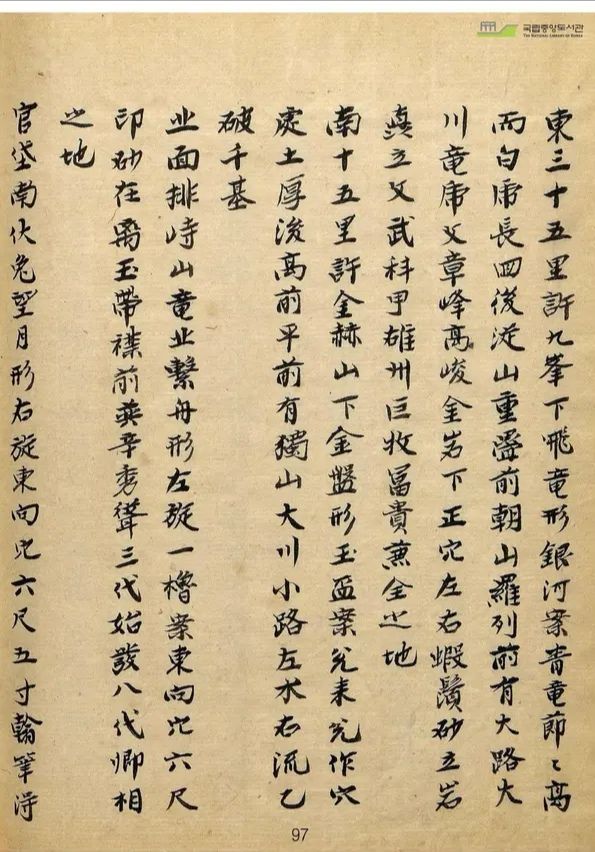 국립중앙도서관
THE NATIONAL LIBRARY OF KOREA
東三十五里許九峯下飛竜形銀河案青竜節〻高
而白虎長四後従山重疊前朝山羅列前有大路大
川竜虎文章峰高峻金岩下正穴左右蝦鬚砂立岩
眞立文武科甲雄州巨牧冨貴兼全之地
南十五里許金赫山下金盤形玉盃案兊来兊作穴
處土厚浚高前平前有獨山大川小路左水右流乙
破千基
北面排峙山竜北繫舟形左旋一櫓案東向穴六尺
印砂在震玉帶襟前英辛秀聳三代始發八代卿相
之地
官垈南伏兔望月形右旋東向穴六尺五寸翰筆浔
97